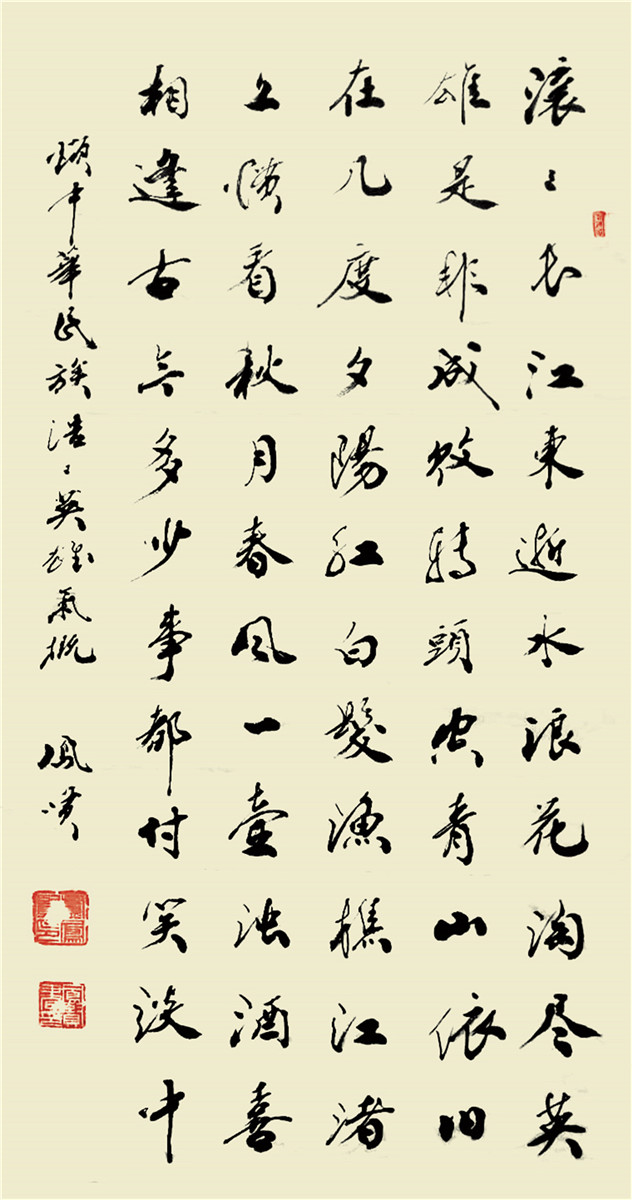 滚々长江東逝水浪花淘尽英
雄是非成败转頭空青山依旧
在几度夕陽红白髮漁樵江渚
上惯看秋月春风一壶浊酒喜
相逢古今多少事都付笑谈中
颂中華民族浩々英雄氣概
凤